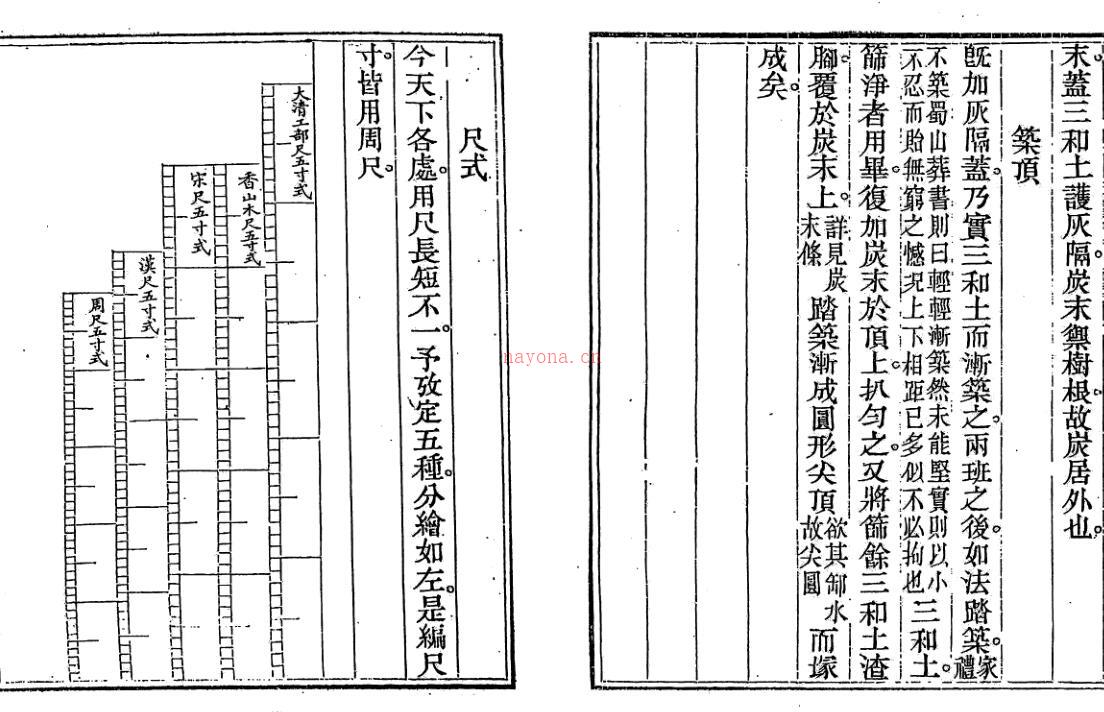 末蓋三和土護灰隔。炭末禦樹根。故炭居外也。
築頂
旣加灰隔蓋。乃實三和土而漸築之。兩班之後。如法踏築。家禮
不築蜀山葬書則曰輕輕漸築然未能堅實則以小
不忍而貽無窮之憾況上下相距已多似不必拘也三和土。
篩淨者用畢。復加炭末於頂上。扒勻之。又將篩餘三和土渣
腳。覆於炭末上。詳見炭末條踏築漸成圓形尖頂欲其卸水故尖圓而塚
成矣。
尺式
今天下各處。用尺長短不一。予攷定五種。分繪如左。是編尺
寸皆用周尺。
大清工部尺五寸式
香山木尺五寸式
宋尺五寸式
漢尺五寸式
周尺五寸式
nayona.cn